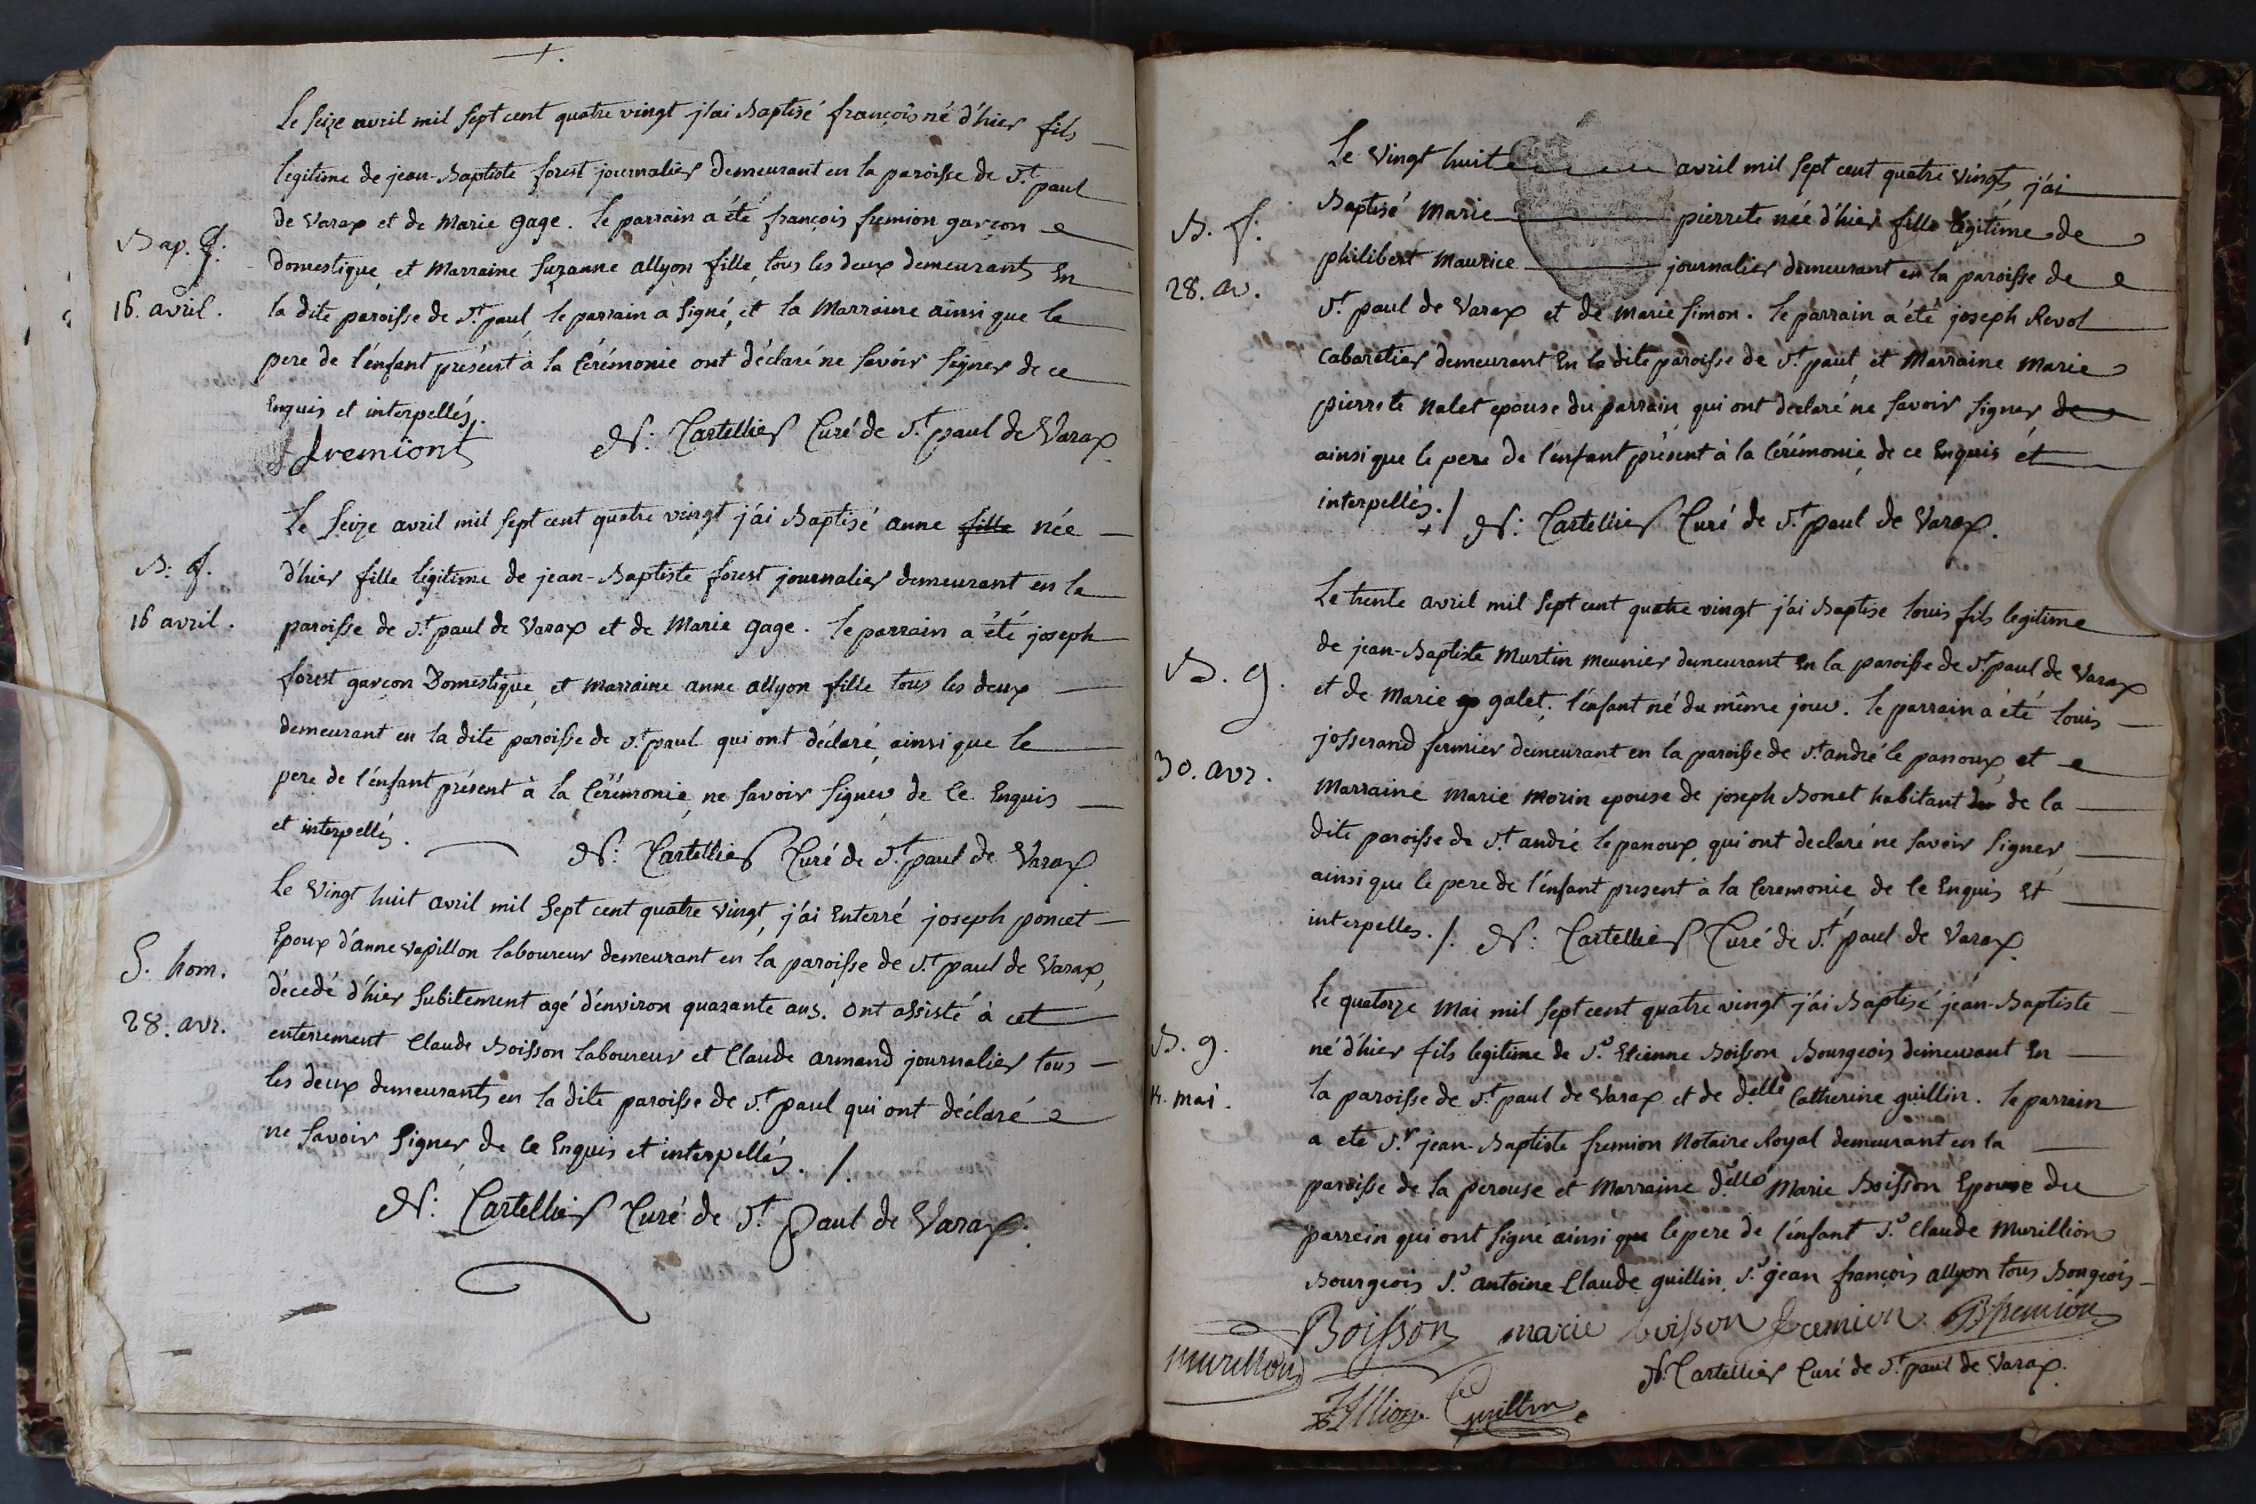 Le seize avril mil sept cent quatre vingt j'ai Baptisé françois né d'hier fils
legitime de jean-Baptiste forest journalier demeurant en la paroisse de St paul
de Varax et de Marie gage. le parrain a été françois fremion garçon
Bap. g.
domestique, et Marraine suzanne allyon fille, tous les deux demeurants En
16. avril.
la dite paroisse de St paul, le parrain a signé, et la Marraine ainsi que le
pere de l'énfant présent à la Cérémonie ont déclaré ne savoir signer de ce
Enquis et interpellés.
fremiont
N: Cartellier Curé de St paul de Varax
Le seize avril mil sept cent quatre vingt j'ai Baptisé anne fille née
B. f.
d'hier fille légitime de jean-Baptiste forest journalier demeurant en la
16 avril.
paroisse de St paul de Varax et de Marie gage. le parrain a été joseph
forest garçon Domestique, et marraine anne allyon fille tous les deux
demeurant en la dite paroisse de St paul qui ont déclaré, ainsi que le
pere de l'énfant présent à la Cérémonie, ne savoir signer de Ce Enquis
et interpellés.
N: Cartellier Curé de St paul de Varax
Le Vingt huit avril mil sept cent quatre vingt, j'ai Enterré joseph poncet
S. hom.
Epoux d'anne vapillon laboureur demeurant en la paroisse de St paul de Varax,
28. avr.
décédé d'hier subitement agé d'énviron quarante ans. ont assisté à cet
enterrement Claude Boisson laboureur et Claude armand journalier tous
les deux demeurants en la dite paroisse de St paul qui ont déclaré
ne savoir signer de Ce Enquis et interpellés. /.
N: Cartellier Curé de St Paul de Varax.
Le Vingt huit avril mil sept cent quatre vingts j'ai
B. f.
Baptisé Marie pierrete née d'hier fille légitime de
28. av.
philibert Maurice journalier demeurant en la paroisse de
St paul de Varax et de Marie simon. le parrain a été joseph Revol
Cabaretier demeurant En la dite paroisse de St paul, et Marraine Marie
pierrete nalet epouse du parrain qui ont declaré ne savoir signer de
ainsi que le pere de l'énfant présent à la Cérémonie, de ce Enquis ét
interpellés. / N: Cartellier Curé de St paul de Varax.
Le trente avril mil sept cent quatre vingt j'ai Baptise louis fils legitime
B. g.
de jean-Baptiste Murtin meunier demeurant En la paroisse de St paul de Varax
et de Marie galet. l'énfant né du même jour. le parrain a été louis
30. avr.
josserand fermier demeurant en la paroisse de St andré le panoux, et
Marraine Marie Morin epouse de joseph Bonet habitant de la
dite paroisse de St andré le panoux, qui ont declaré ne savoir signer,
ainsi que le pere de l'énfant present à la Ceremonie, de Ce Enquis Et
interpelles. /. N: Cartellier Curé de St paul de Varax
Le quatorze Mai mil sept cent quatre vingt j'ai Baptisé jean-Baptiste
B. g.
né d'hier fils legitime de Sr Etienne Boisson Bourgeois demeurant En
14. mai.
la paroisse de St paul de Varax et de delle Catherine guillin. le parrain
a eté Sr jean-Baptiste fremion Notaire Royal demeurant en la
paroisse de la perouse et Marraine delle Marie Boisson Epouse du
parrein qui ont signé ainsi que le pere de l'énfant Sr Claude Murillion
Bourgeois Sr antoine Claude guillin, Sr jean françois allyon tous Bougeois
Boisson marie boisson fremion Bfremion
murillion
N: Cartellier Curé de St paul de Varax.
Guillin